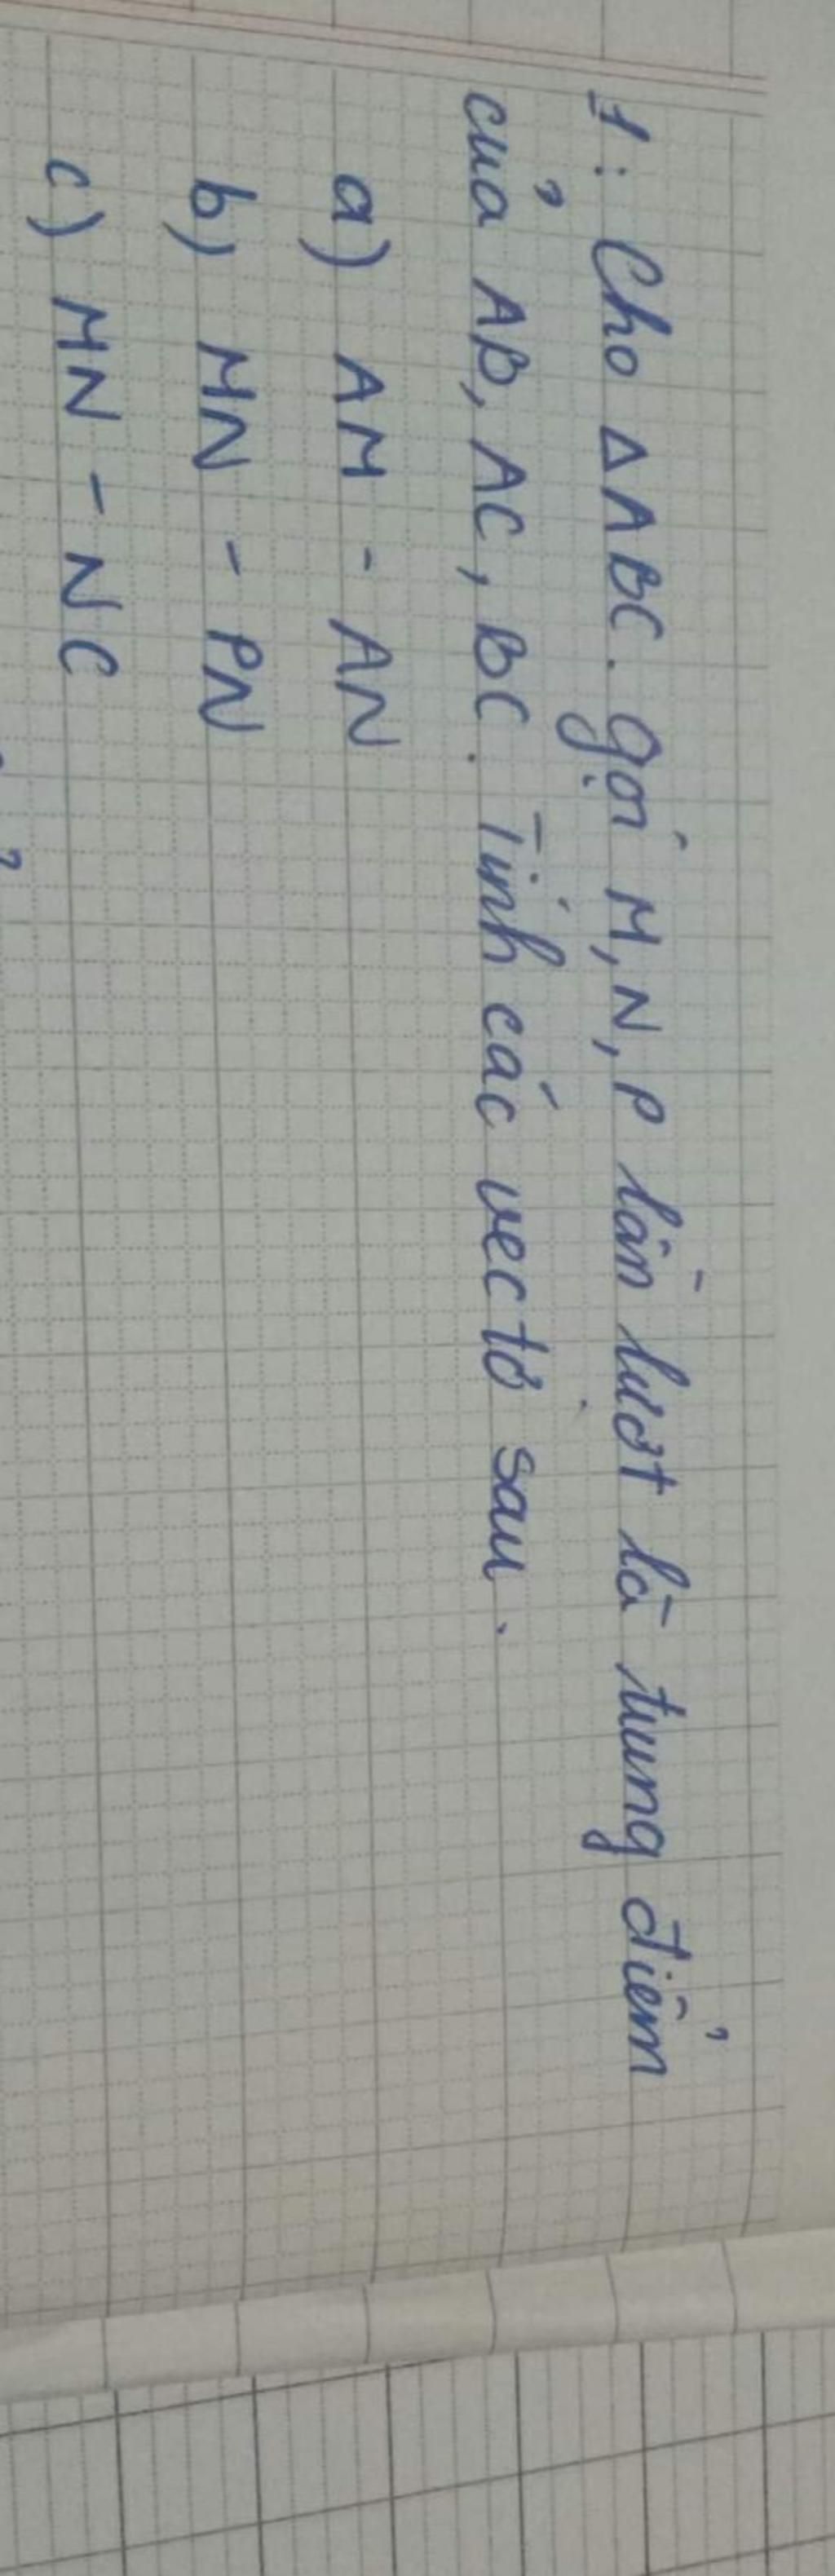 1: Cho △ABC. gọi M, N, P lần lượt là trung điểm
của AB, AC, BC. Tính các vectơ sau.
a) AM - AN
b) MN - PN
c) MN - NC